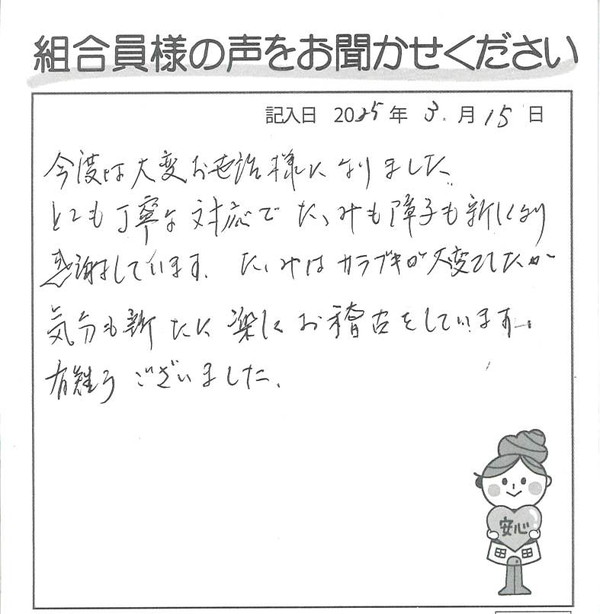 組合員様の声をお聞かせください
記入日 2025年 3月 15日
今度は大変お世話様になりました
とても丁寧な対応で たゝみも障子も新しくなり
感謝しています. たゝみはカラブキが大変でしたが
気分も新たに 楽しくお稽古をしています.
有難うございました.
安心